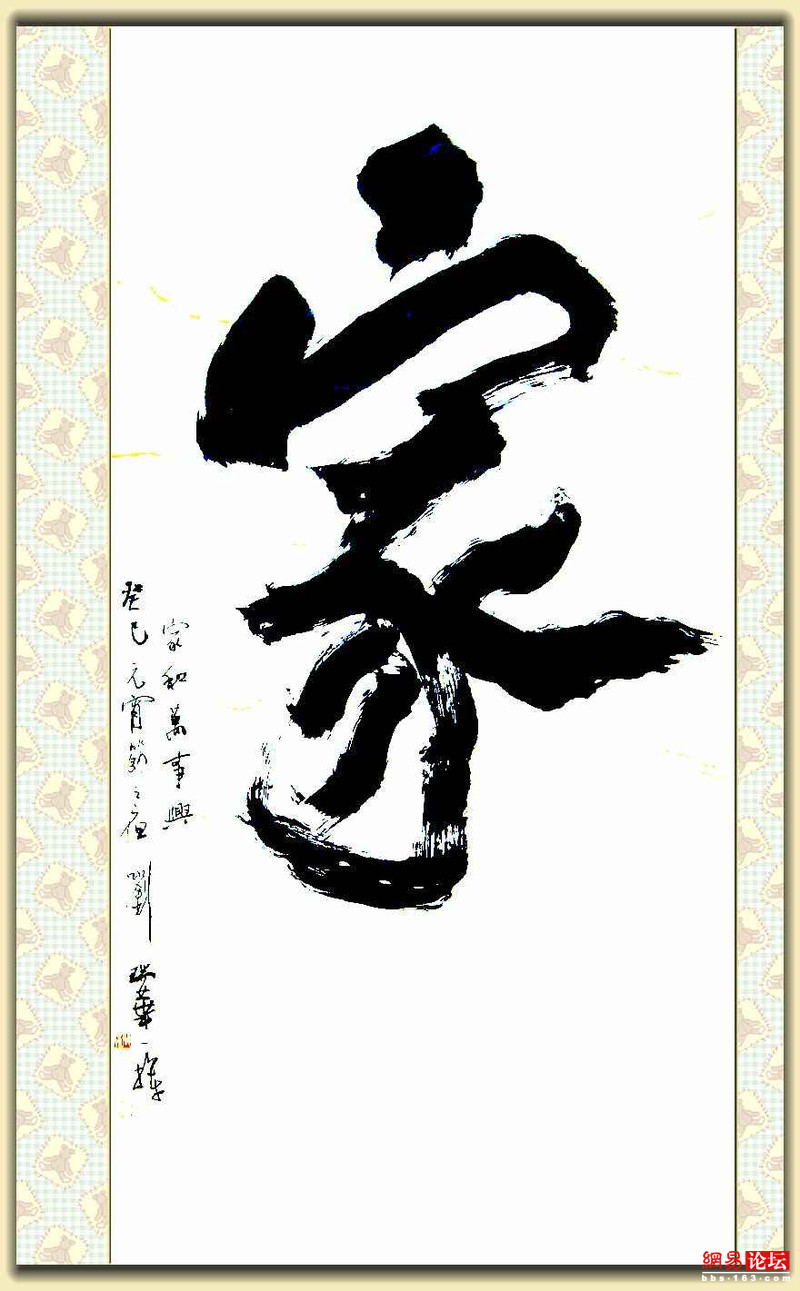 家
家和萬事興
癸巳元宵節之夜 劉瑞華一揮
網易论坛
bbs.163.com